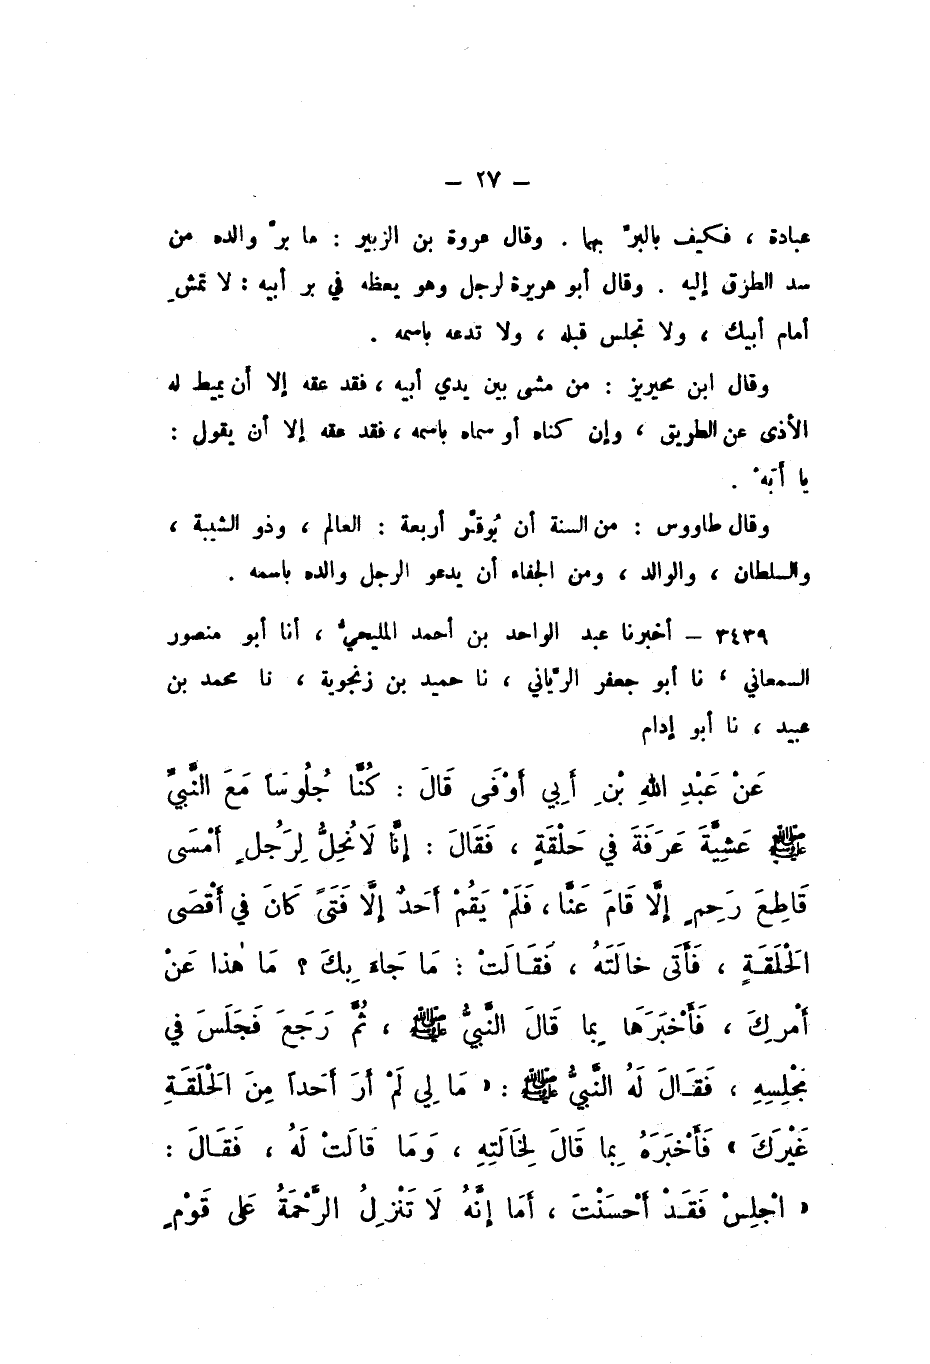 – ٢٧ –
عبادة ، فكيف بالبرّ بهما . وقال عروة بن الزبير : ما برّ والده من
سد الطرق إليه . وقال أبو هريرة لرجل وهو يعظه في بر أبيه : لا تمشِ
أمام أبيك ، ولا تجلس قبله ، ولا تدعه باسمه .
وقال ابن محيريز : من مشى بين يدي أبيه ، فقد عقه إلا أن يميط له
الأذى عن الطريق ، وإن كناه أو سماه باسمه ، فقد عقه إلا أن يقول :
يا أبَهْ .
وقال طاووس : من السنة أن يُوقَّر أربعة : العالم ، وذو الشيبة ،
والسلطان ، والوالد ، ومن الجفاء أن يدعو الرجل والده باسمه .
٣٤٣٩ – أخبرنا عبد الواحد بن أحمد المليحيُّ ، أنا أبو منصور
السمعاني ، نا أبو جعفر الرَّياني ، نا حميد بن زنجوية ، نا محمد بن
عبيد ، نا أبو إدام
عَنْ عَبْدِ اللهِ بْنِ أَبِي أَوْفَى قَالَ : كُنَّا جُلُوسَاً مَعَ النَّبِيِّ
ﷺ عَشِيَّةَ عَرَفَةَ فِي حَلْقَةٍ ، فَقَالَ : إِنَّا لَا نُحِلُّ لِرَجُلٍ أَمْسَى
قَاطِعَ رَحِمٍ إِلَّا قَامَ عَنَّا ، فَلَمْ يَقُمْ أَحَدٌ إِلَّا فَتَىً كَانَ فِي أَقْصَى
الْحَلَقَةِ ، فَأَتَى خَالَتَهُ ، فَقَالَتْ : مَا جَاءَ بِكَ ؟ مَا هٰذا عَنْ
أَمْرِكَ ، فَأَخْبَرَهَا بِمَا قَالَ النَّبِيُّ ﷺ ، ثُمَّ رَجَعَ فَجَلَسَ فِي
مَجْلِسِهِ ، فَقَالَ لَهُ النَّبِيُّ ﷺ : « مَا لِي لَمْ أَرَ أَحَداً مِنَ الْحَلَقَةِ
غَيْرَكَ » فَأَخْبَرَهُ بِمَا قَالَ لِخَالَتِهِ ، وَمَا قَالَتْ لَهُ ، فَقَالَ :
« اجْلِسْ فَقَدْ أَحْسَنْتَ ، أَمَا إِنَّهُ لَا تَنْزِلُ الرَّحْمَةُ عَلَى قَوْمٍ